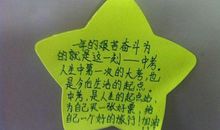 一年的艰苦奋斗为
的就是这一刻——中考,
人生中第一次的大考,也
是今世生活的起点。
中考,是人生的起点站,为
自己买一张好票,给
自己一个好的旅行!加油